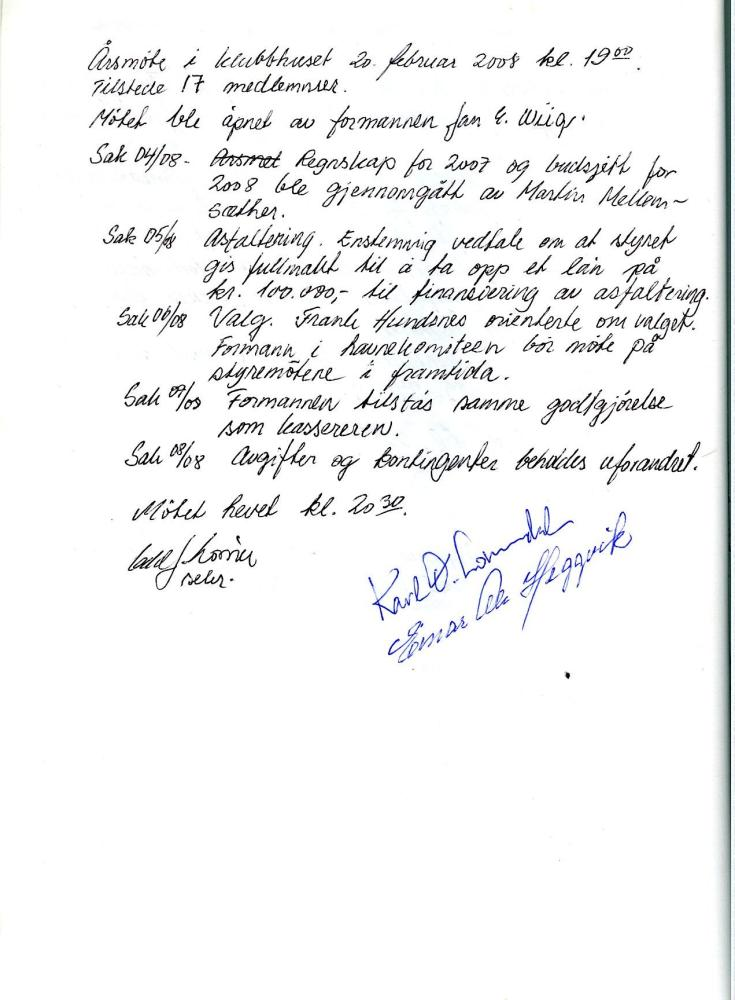 Årsmöte i klubbhuset 20. februar 2008 kl. 19⁰⁰.
Tilstede 17 medlemmer.
Mötet ble åpnet av formannen Jan E. Wiig.
Sak 04/08 - Årsmøt Regnskap for 2007 og budsjett for
2008 ble gjennomgått av Martin Mellem-
sæther.
Sak 05/08 Asfaltering. Enstemmig vedtale om at styret
gis fullmakt til å ta opp et lån på
kr. 100.000,- til finansiering av asfaltering.
Sak 06/08 Valg. Frank Hundsnes orienterte om valget.
Formann i havnekomiteen bör möte på
styremötene i framtida.
Sak 07/08 Formannen tilstås samme godtgjörelse
som kassereren.
Sak 08/08 Avgifter og kontingenter beholdes uforandret.
Mötet hevet kl. 20³⁰.
sekr.
Karl O.
Einar Heggvik